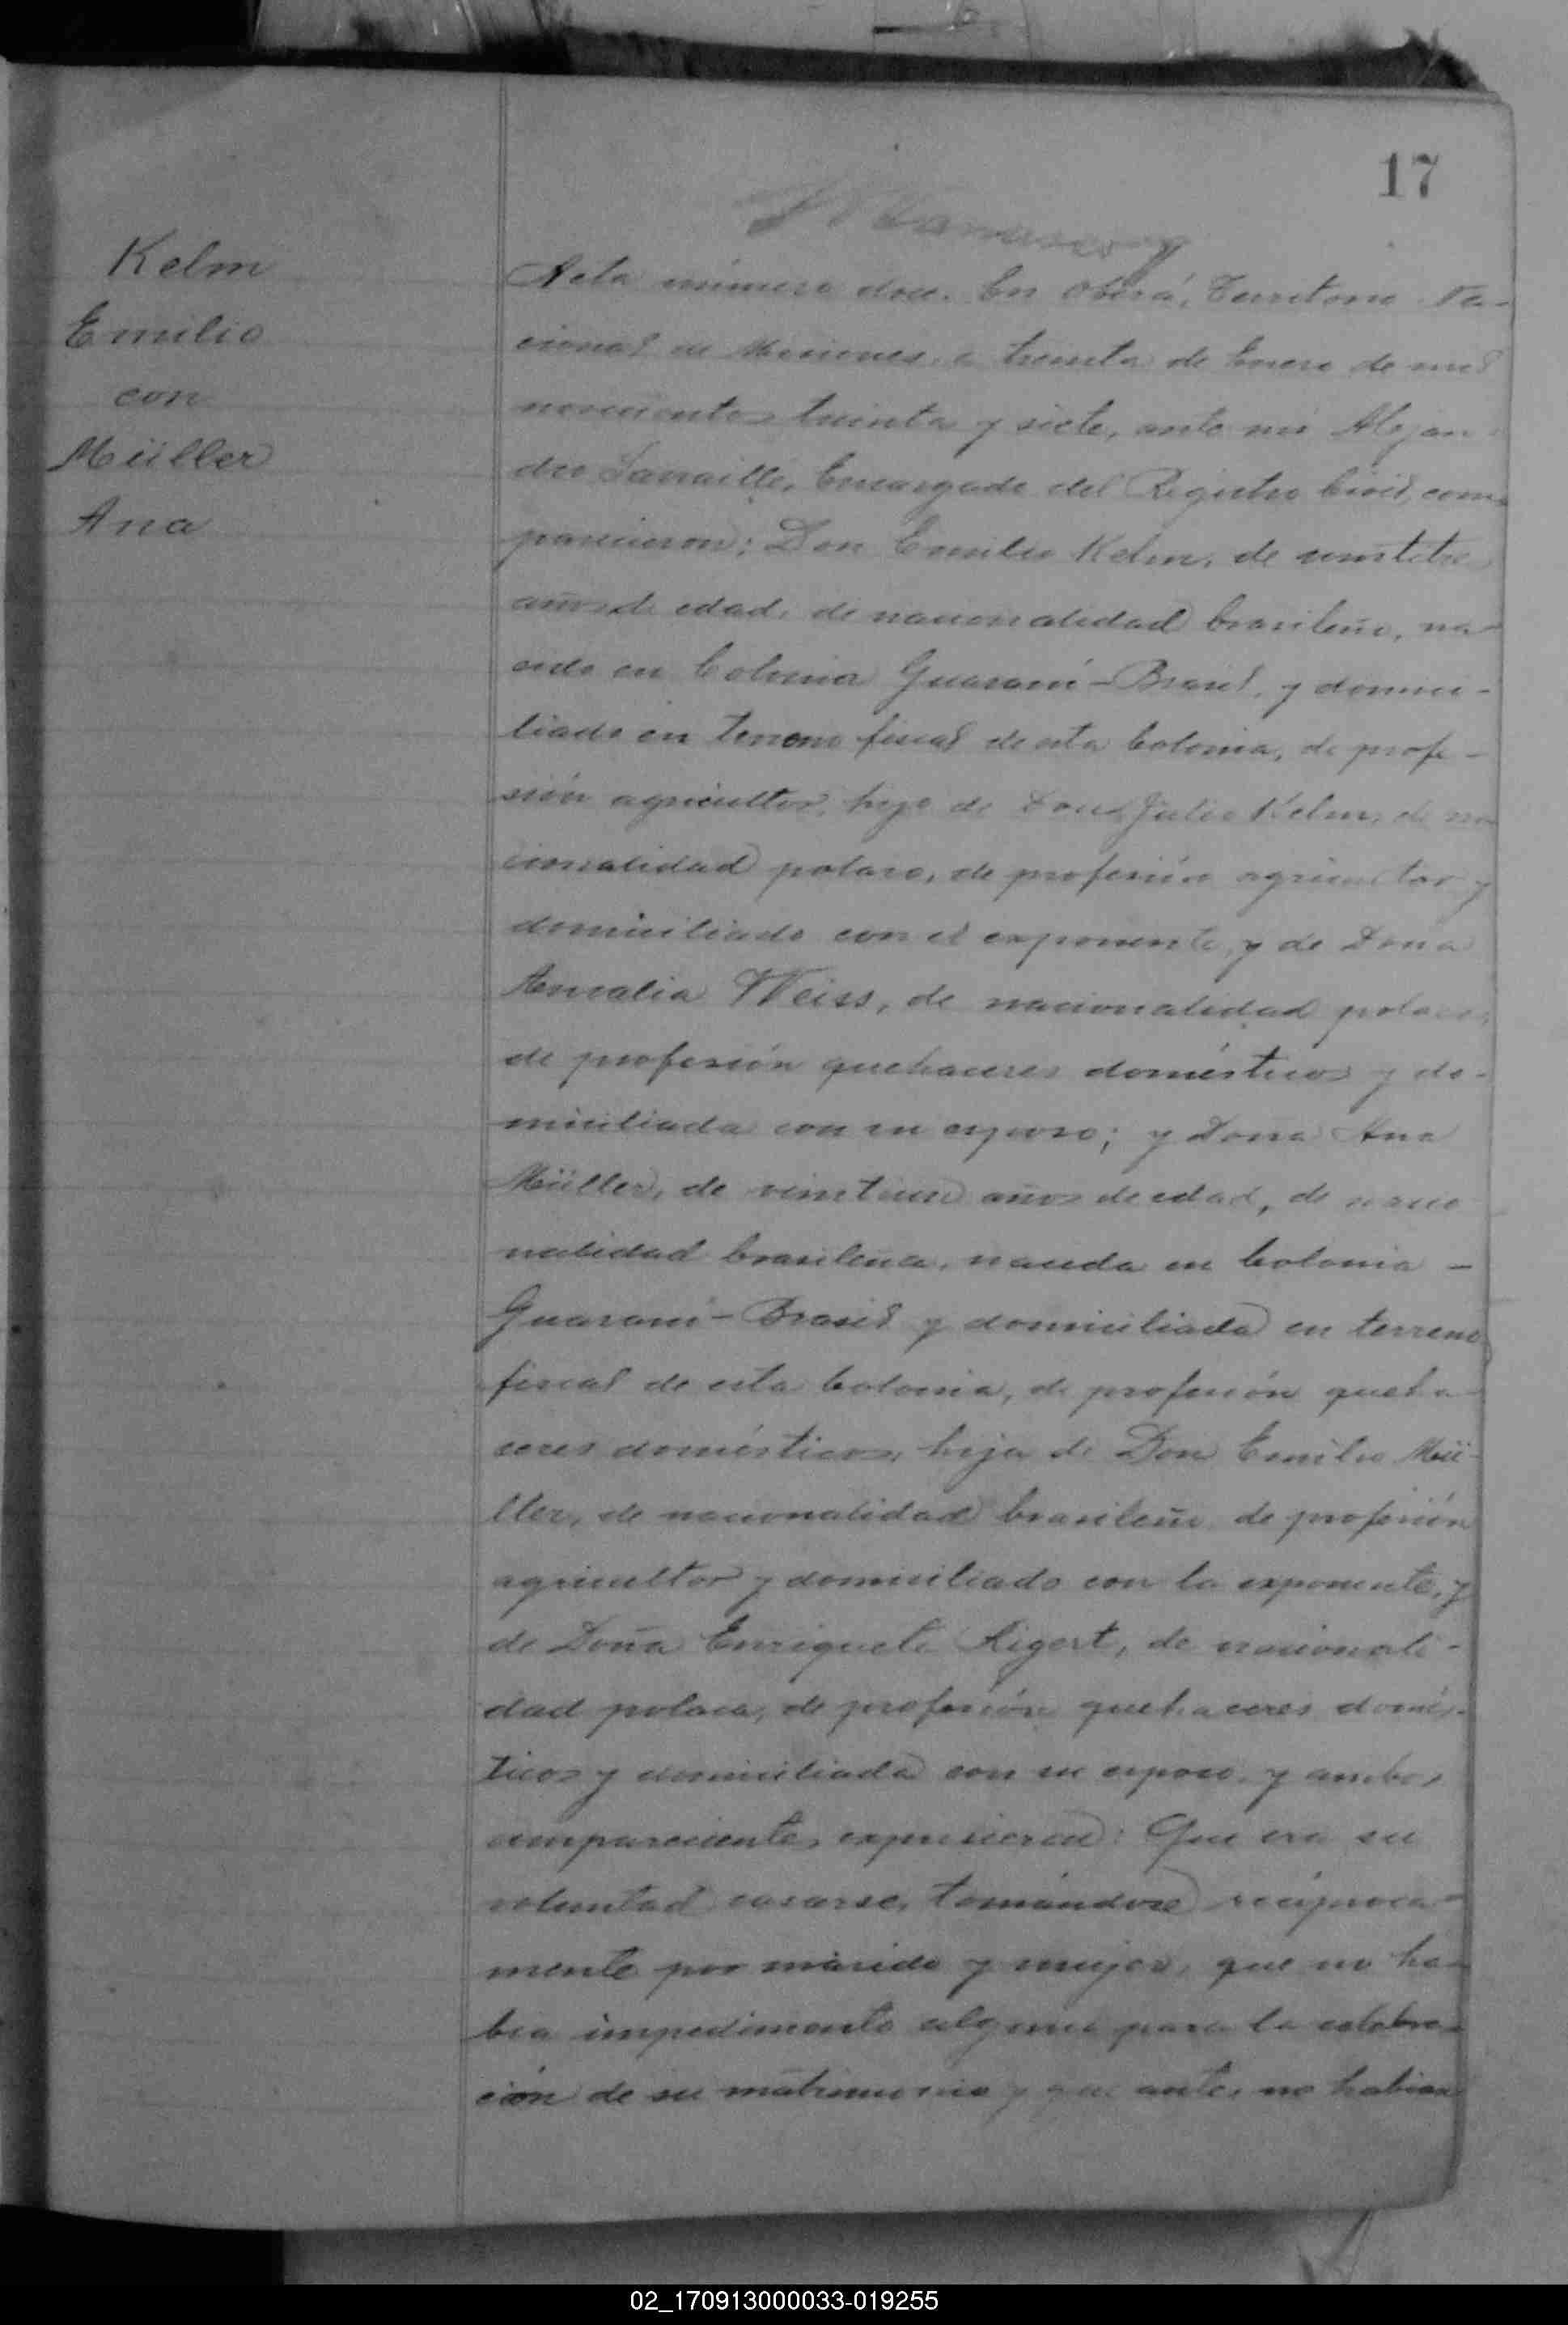 17
Kelm
Emilio
con
Müller
Ana
Acta número doce. En Oberá, Territorio Na-
cional de Misiones, a treinta de Enero de mil
novecientos treinta y siete, ante mi Alejan-
dro Larraille, Encargado del Registro Civil, com-
parecieron: Don Emilio Kelm, de veintitres
años de edad, de nacionalidad brasileño, na-
cido en Colonia Guaraní-Brasil, y domici-
liado en terreno fiscal de esta Colonia, de profe-
sión agricultor, hijo de Don Julio Kelm, de na
cionalidad polaco, de profesión agricultor y
domiciliado con el exponente, y de Doña
Amalia Weiss, de nacionalidad polaca,
de profesión quehaceres domésticos y do-
miciliada con su esposo; y Doña Ana
Müller, de veintiun años de edad, de nacio
nalidad brasileña, nacida en Colonia -
Guaraní-Brasil y domiciliada en terreno
fiscal de esta Colonia, de profesión queha-
ceres domésticos, hija de Don Emilio Mü-
ller, de nacionalidad brasileño de profesión
agricultor y domiciliado con la exponente, y
de Doña Enriqueta Rigert, de nacionali-
dad polaca, de profesión quehaceres domés-
ticos y domiciliada con su esposo, y ambos
comparecientes expusieron: Que era su
voluntad casarse, tomándose recíproca-
mente por marido y mujer, que no ha-
bía impedimento alguno para la celebra-
ción de su matrimonio y que antes no habian
02_170913000033-019255